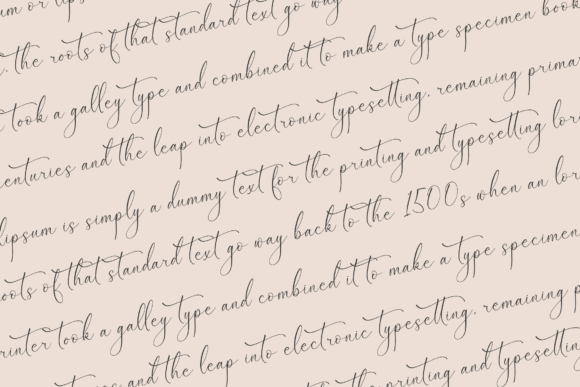 um or
. the roots of that standard text go way
took a galley type and combined it to make a type specimen book
centuries and the leap into electronic typesetting. remaining prima
lipsum is simply a dummy text for the printing and typesetting lor
oots of that standard text go way back to the 1500s when an lor
rinter took a galley type and combined it to make a type specimen
and the leap into electronic typesetting. remaining p
the printing and typesettin